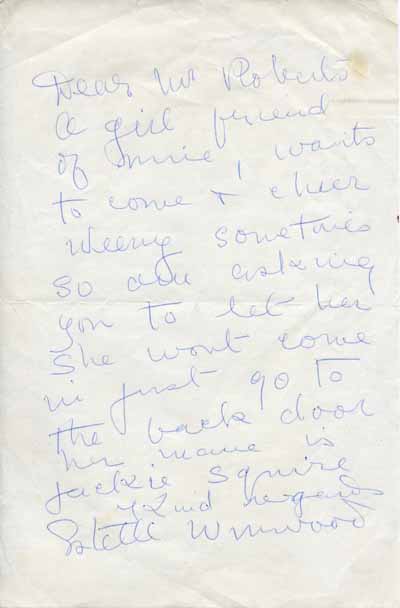 Dear Mr Roberts
A girl friend
of mine, wants
to come & cheer
Weeny sometimes
so am asking
you to let her
She wont come
in just go to
the back door
her name is
Jackie Squire
Kind regards
Estelle Winwood